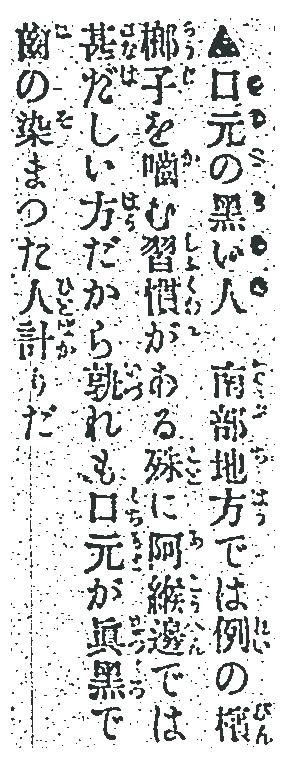 ▲口元の黑い人　南部地方では例の檳
榔子を嚙む習慣がある殊に阿緱邊では
甚だしい方だから孰れも口元が眞黑で
齒の染まつた人計りだ